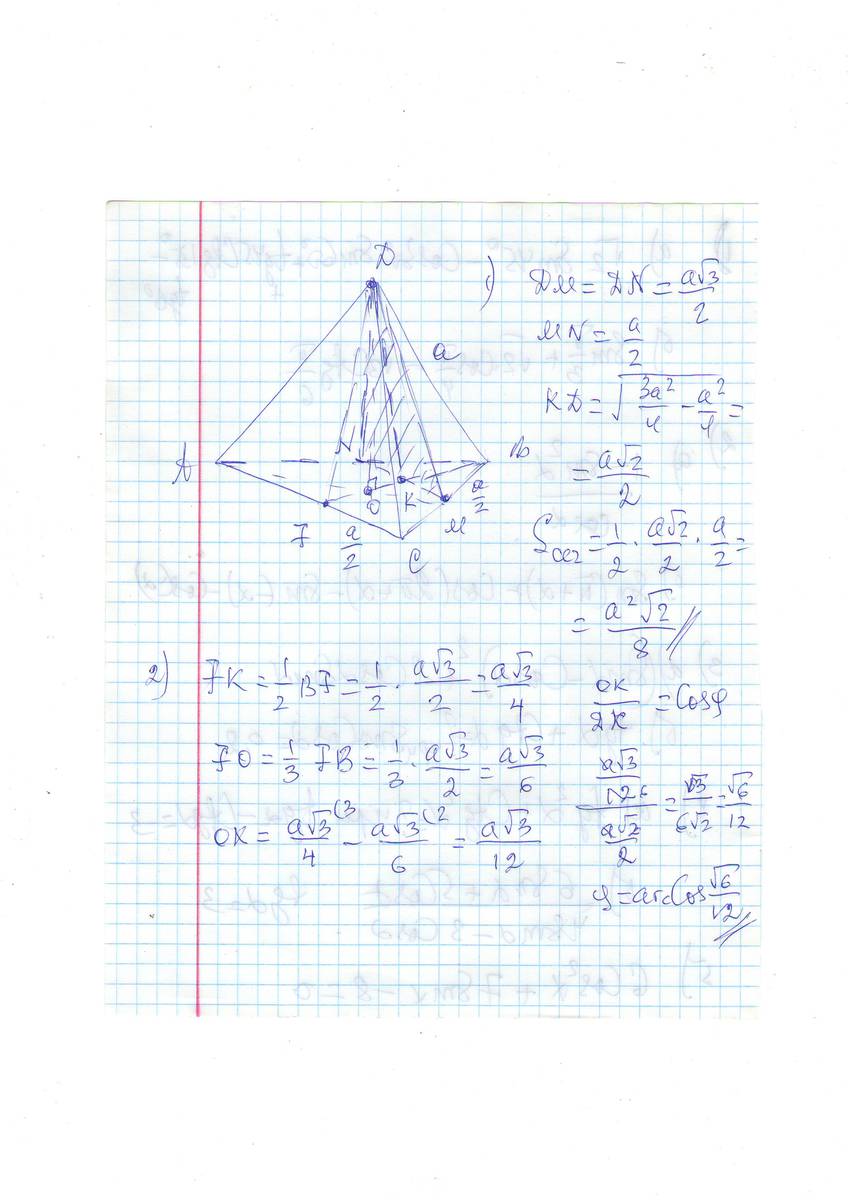 D
a
A
N
B
O
K
F
a/2
C
M
a/2
1) DM = DN = a√3/2
MN = a/2
KD = √(3a²/4 - a²/4) =
= a√2/2
Sсеч = 1/2 · a√2/2 · a/2 =
= a²√2/8
2) FK = 1/2 BF = 1/2 · a√3/2 = a√3/4
FO = 1/3 FB = 1/3 · a√3/2 = a√3/6
OK = a√3/4 (3 - a√3/6 (2 = a√3/12
OK/DK = Cosφ
(a√3/12 6)/(a√2/2) = √3/6√2 = √6/12
φ = arcCos √6/12